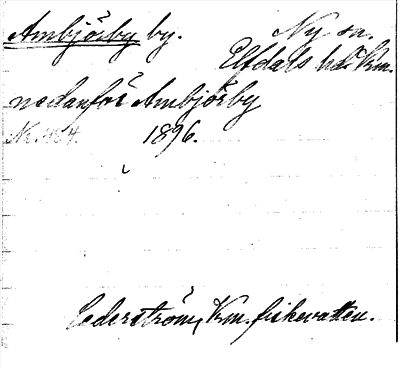 Ambjörby by. Ny sn.
Elfdals hd Vrm.
nedanför Ambjörby
1896.
Cederström, Vrm. fiskevatten.